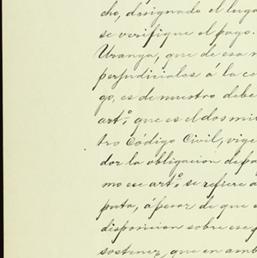 cho, designado el luga
se verifique el pago.
Uranga, que de esa m
perjudiciales á la co
go, es de nuestro debe
artº, que es el dos mi
tro Código Civil, vige
dor la obligacion de pa
mo ese artº se refiere á
puta, á pesar de que e
disposicion sobre ese
sostener, que en amb